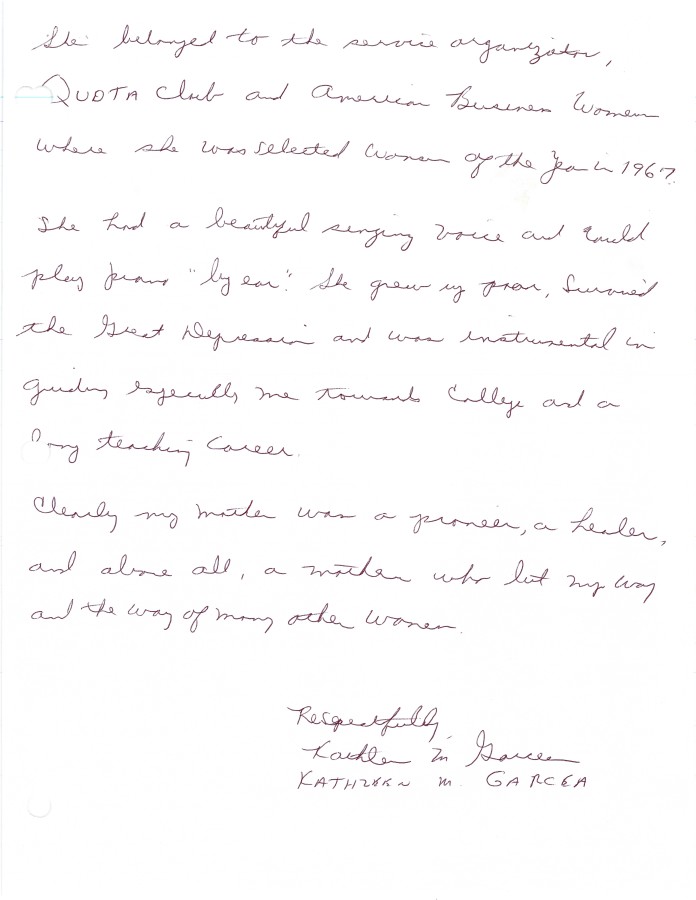 She belonged to the service organization,
QUOTA Club and American Business Women
where she was selected Woman of the Year in 1967.
She had a beautiful singing voice and could
play piano "by ear". She grew up poor, survived
the Great Depression and was instrumental in
guiding especially me towards College and a
long teaching career.
Clearly my mother was a pioneer, a healer,
and above all, a mother who lit my way
and the way of many other women.
Respectfully,
Kathleen M. Garcea
KATHLEEN M. GARCEA